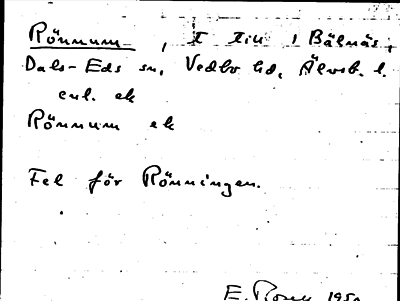 Rönnum , t till 1 Bälnäs,
Dals-Eds sn, Vedbo hd, Älvsb. l.
enl. ek
Rönnum ek
Fel för Rönningen.
E. Rosell 1950